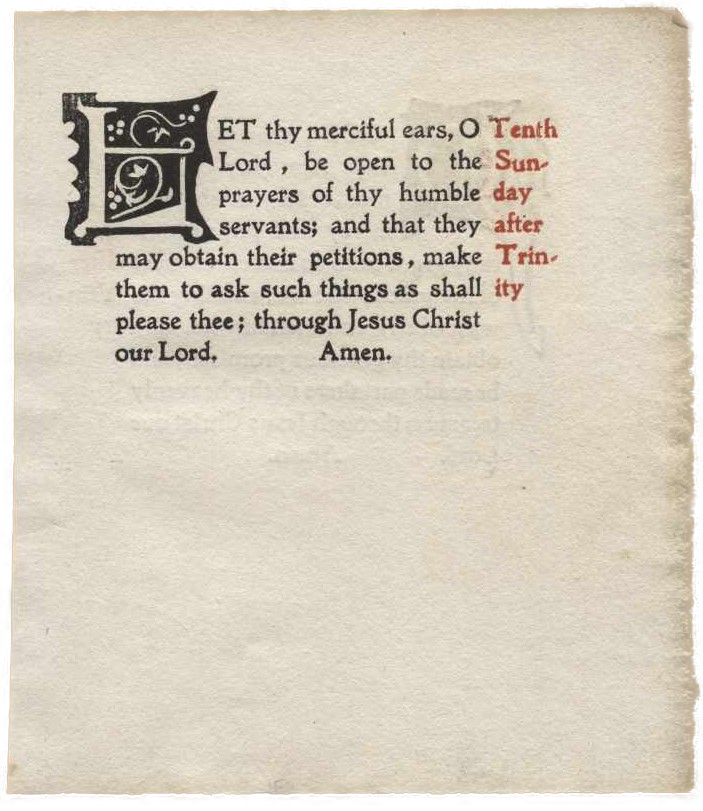 LET thy merciful ears, O
Lord, be open to the
prayers of thy humble
servants; and that they
may obtain their petitions, make
them to ask such things as shall
please thee; through Jesus Christ
our Lord. Amen.
Tenth
Sun-
day
after
Trin-
ity